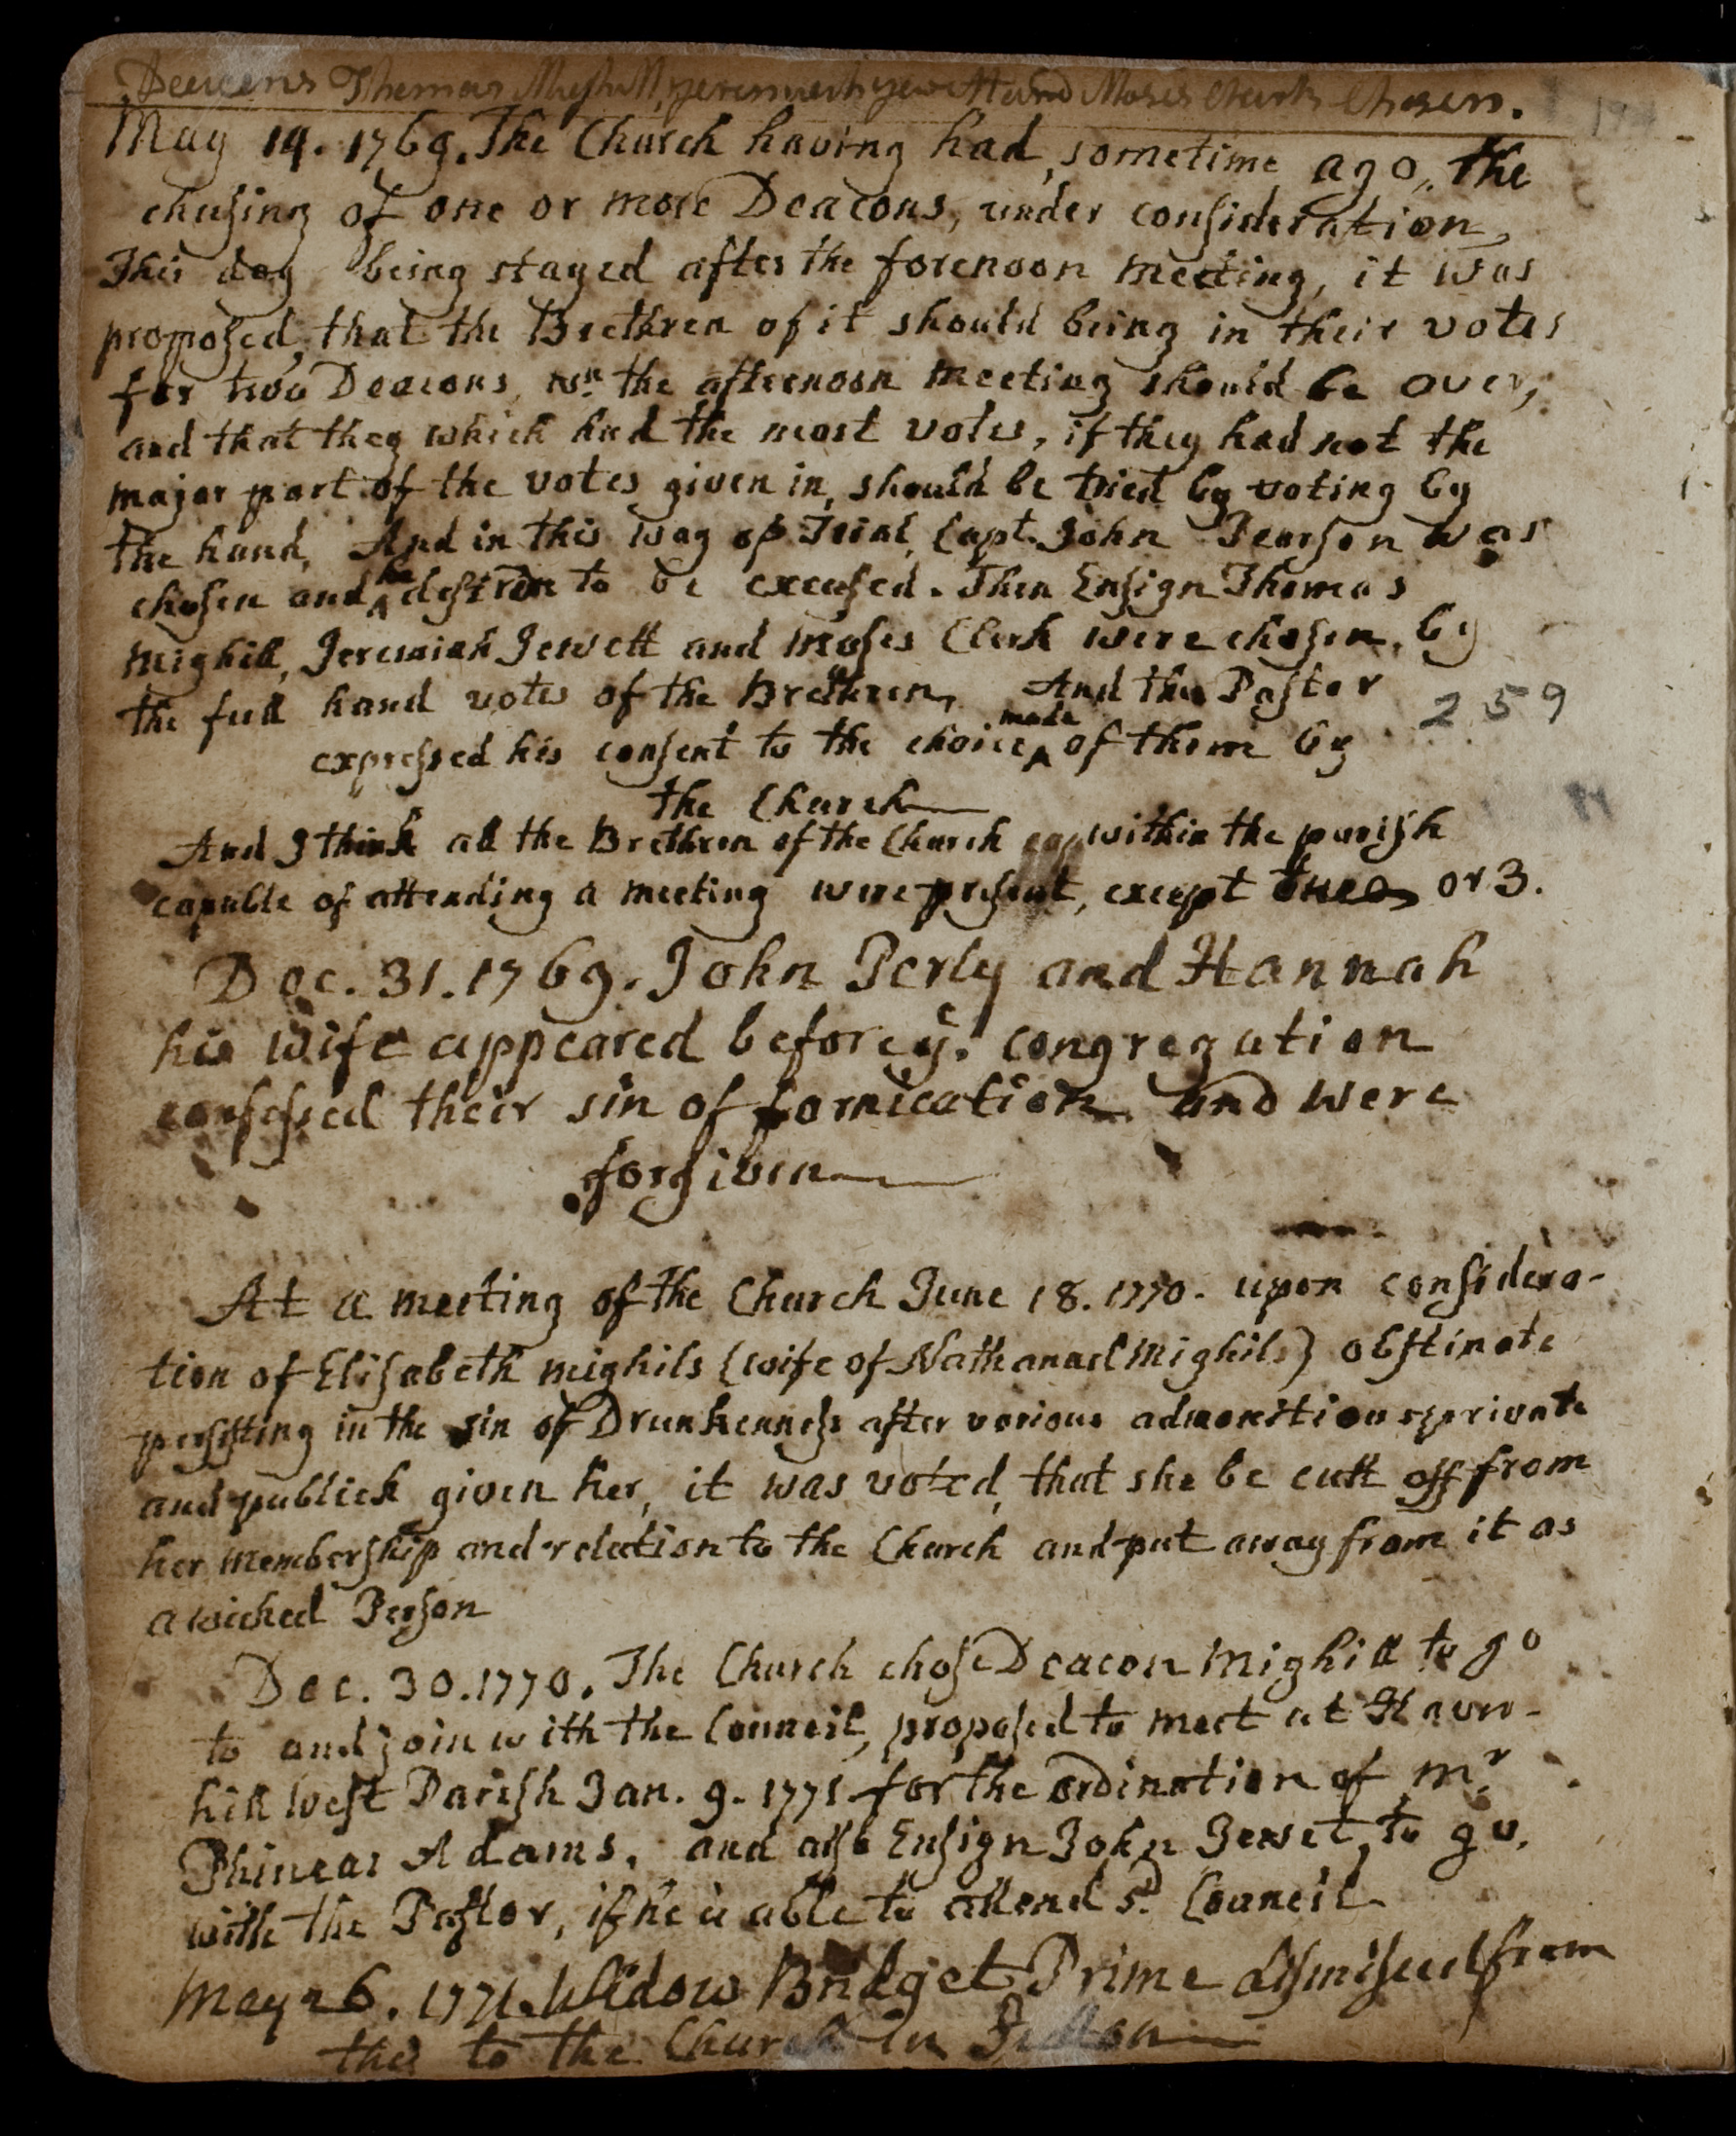 Deacons Thomas Mighill, Jeremiah Jewett and Moses Clark Chosen.
May 14. 1769. The Church having had, sometime ago, the
chusing of one or more Deacons, under consideration,
This day being stayed after the forenoon meeting, it was
proposed, that the Brethren of it should bring in their votes
for two Deacons, wn. the afternoon meeting should be over,
and that they which had the most votes, if they had not the
major part of the votes given in, should be tried by voting by
the hand, And in this way of Trial, Capt. John Pearson was
chosen and he desired to be excused. Then Ensign Thomas
Mighill, Jeremiah Jewett and Moses Clark were chosen, by
the full hand votes of the Brethren, And the Pastor
259
expressed his consent to the choice made of them by
the Church
And I think all the Brethren of the Church cap within the parish
capable of attending a meeting were present, except two or 3.
Dec. 31. 1769. John Perly and Hannah
his wife appeared before ye. congregation
confessed their sin of fornication and were
forgiven
At a meeting of the Church June 18. 1770. upon considera-
tion of Elisabeth Mighils (wife of Nathanael Mighils) obstinate
persisting in the sin of Drunkenness after various admonitions private
and publick given her, it was voted, that she be cutt off from
her membership and relation to the Church and put away from it as
a wicked Person
Dec. 30. 1770. The Church chose Deacon Mighill to go
to and join with the Council, proposed to meet at Haver-
hill West Parish Jan. 9. 1771. for the ordination of Mr.
Phineas Adams, and also Ensign John Jewet, to go,
with the Pastor, if he is able to attend sd. Council
May 26. 1771. Widow Bridget Prime dismissed from
this to the Church in